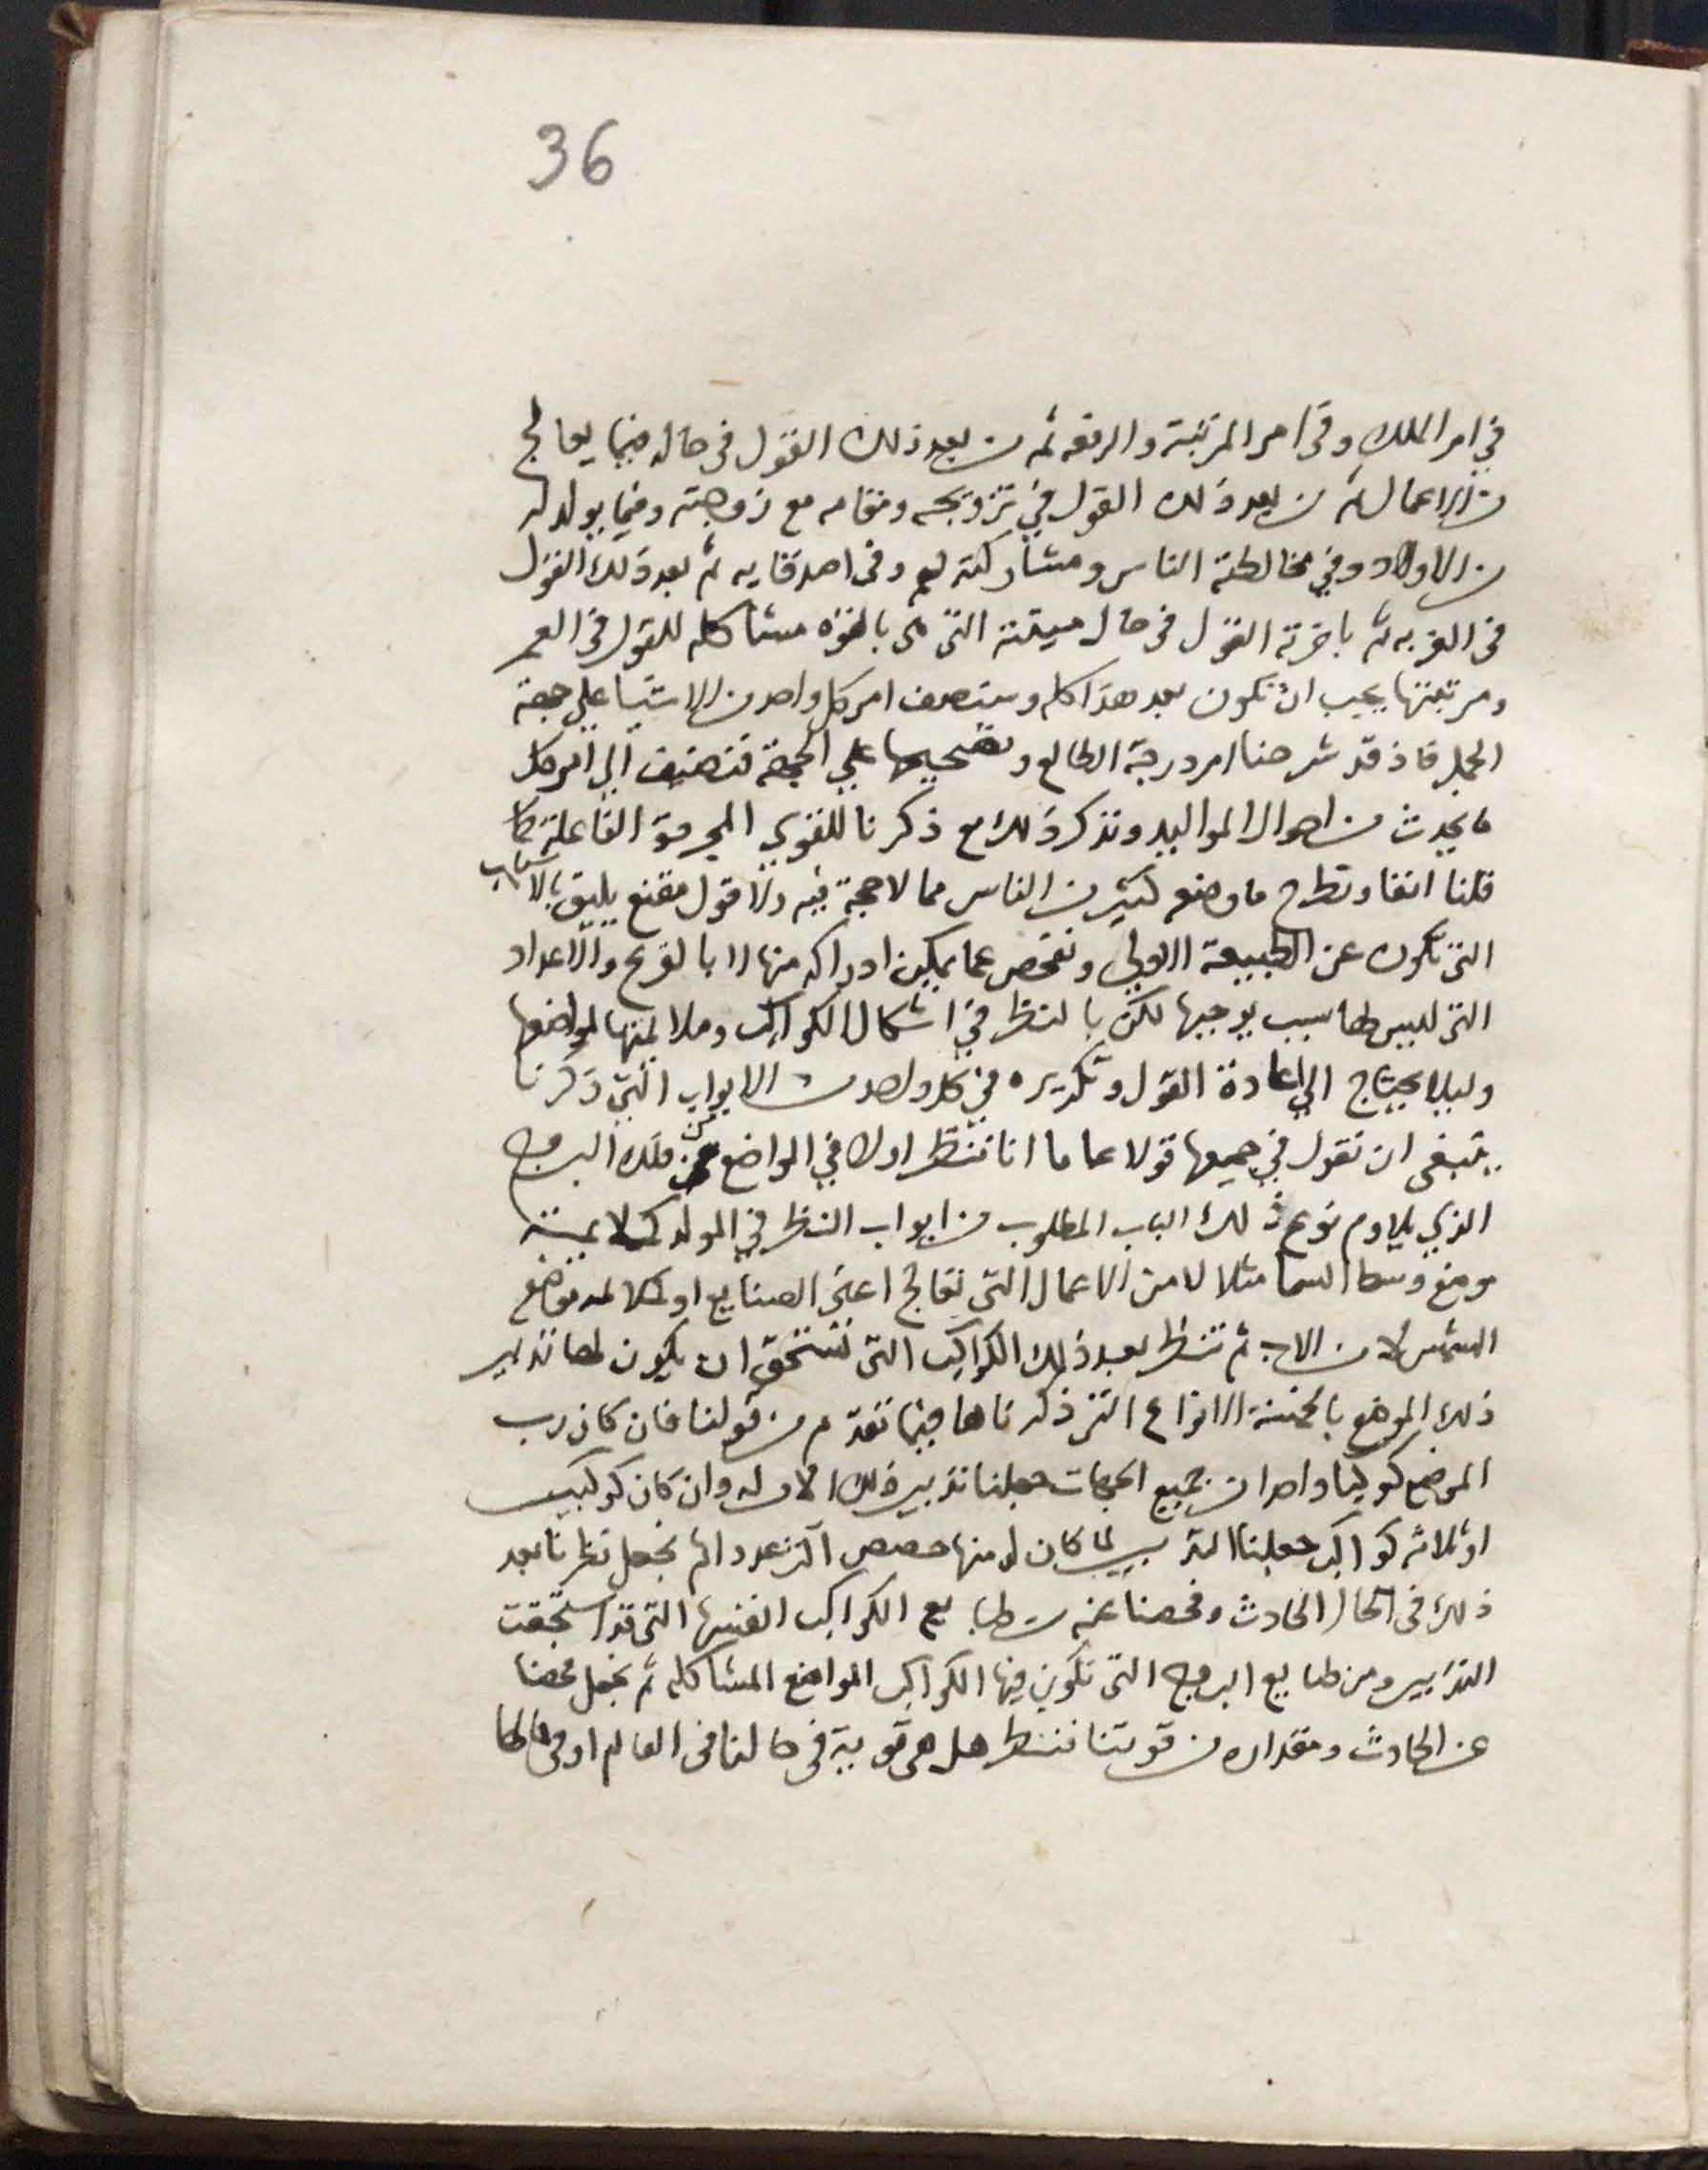 36
في امر الملك وفي امر المرتبة والرفعه ثم من بعد ذلك القول في حاله فيما يعالج
من الاعمال ثم من بعد ذلك القول في تزويجه ومقامه مع زوجته وفيما يولد له
من الاولاد وفي مخالطة الناس ومشاركته لهم وفي اصدقايه ثم بعد ذلك القول
في الغربه ثم باخرته القول في حال ميتته التي هي بالقوه مشاكله للقول في العمر
ومرتبتها يجب ان تكون بعد هذا كله وسنصف امر كل واحد من الاشيا علي جهة
الجمل فاذ قد شرحنا امر درجة الطالع وتصحيحها علي الجهة فنضيف الي امر كل
ما يحدث من احوال المواليد ونذكر ذلك مع ذكرنا للقوي الفاعلة كما
قلنا انفا ونطرح ما وضعه كثير من الناس مما لا حجة فيه ولا قول مقنع يليق بالاسباب
التي تكون عن الطبيعة الاولي ونفحص عما يمكن ادراكه منها لا بالقرع والاعداد
التي ليس لها سبب يوجبها لكن بالنظر في اشكال الكواكب وملايمتها لمواضعها
وليلا يحتاج الي اعادة القول وتكريره في كل واحد من الابواب التي ذكرنا
ينبغي ان نقول في جميعها قولا عاما انا ننظر اولا في المواضع من فلك البروج
الذي يلاوم نوع ذلك الباب المطلوب من ابواب النظر في المولد كملايمة
موضع وسط السما مثلا لامر الاعمال التي تعالج اعني الصنايع او كملايمة موضع
الشمس لامر الاب ثم ننظر بعد ذلك الكواكب التي تستحق ان يكون لها تدبير
ذلك الموضع بالخمسة الانواع التي ذكرناها فيما تقدم من قولنا فان كان رب
الموضع كوكبا واحدا من جميع الجهات جعلنا تدبير ذلك الامر له وان كان كوكبين
او ثلاثه كواكب جعلنا التدبير لما كان له منها حصص اكثر عددا ثم نجعل نظرنا بعد
ذلك في الحال الحادث وفحصنا عنه من طبايع الكواكب انفسها التي قد استحقت
التدبير ومن طبايع البروج التي تكون فيها الكواكب المواضع المشاكله ثم نجعل فحصنا
عن الحادث ومقداره من قوتنا فننظر هل هي قوية في حالنا في العالم او في حالها